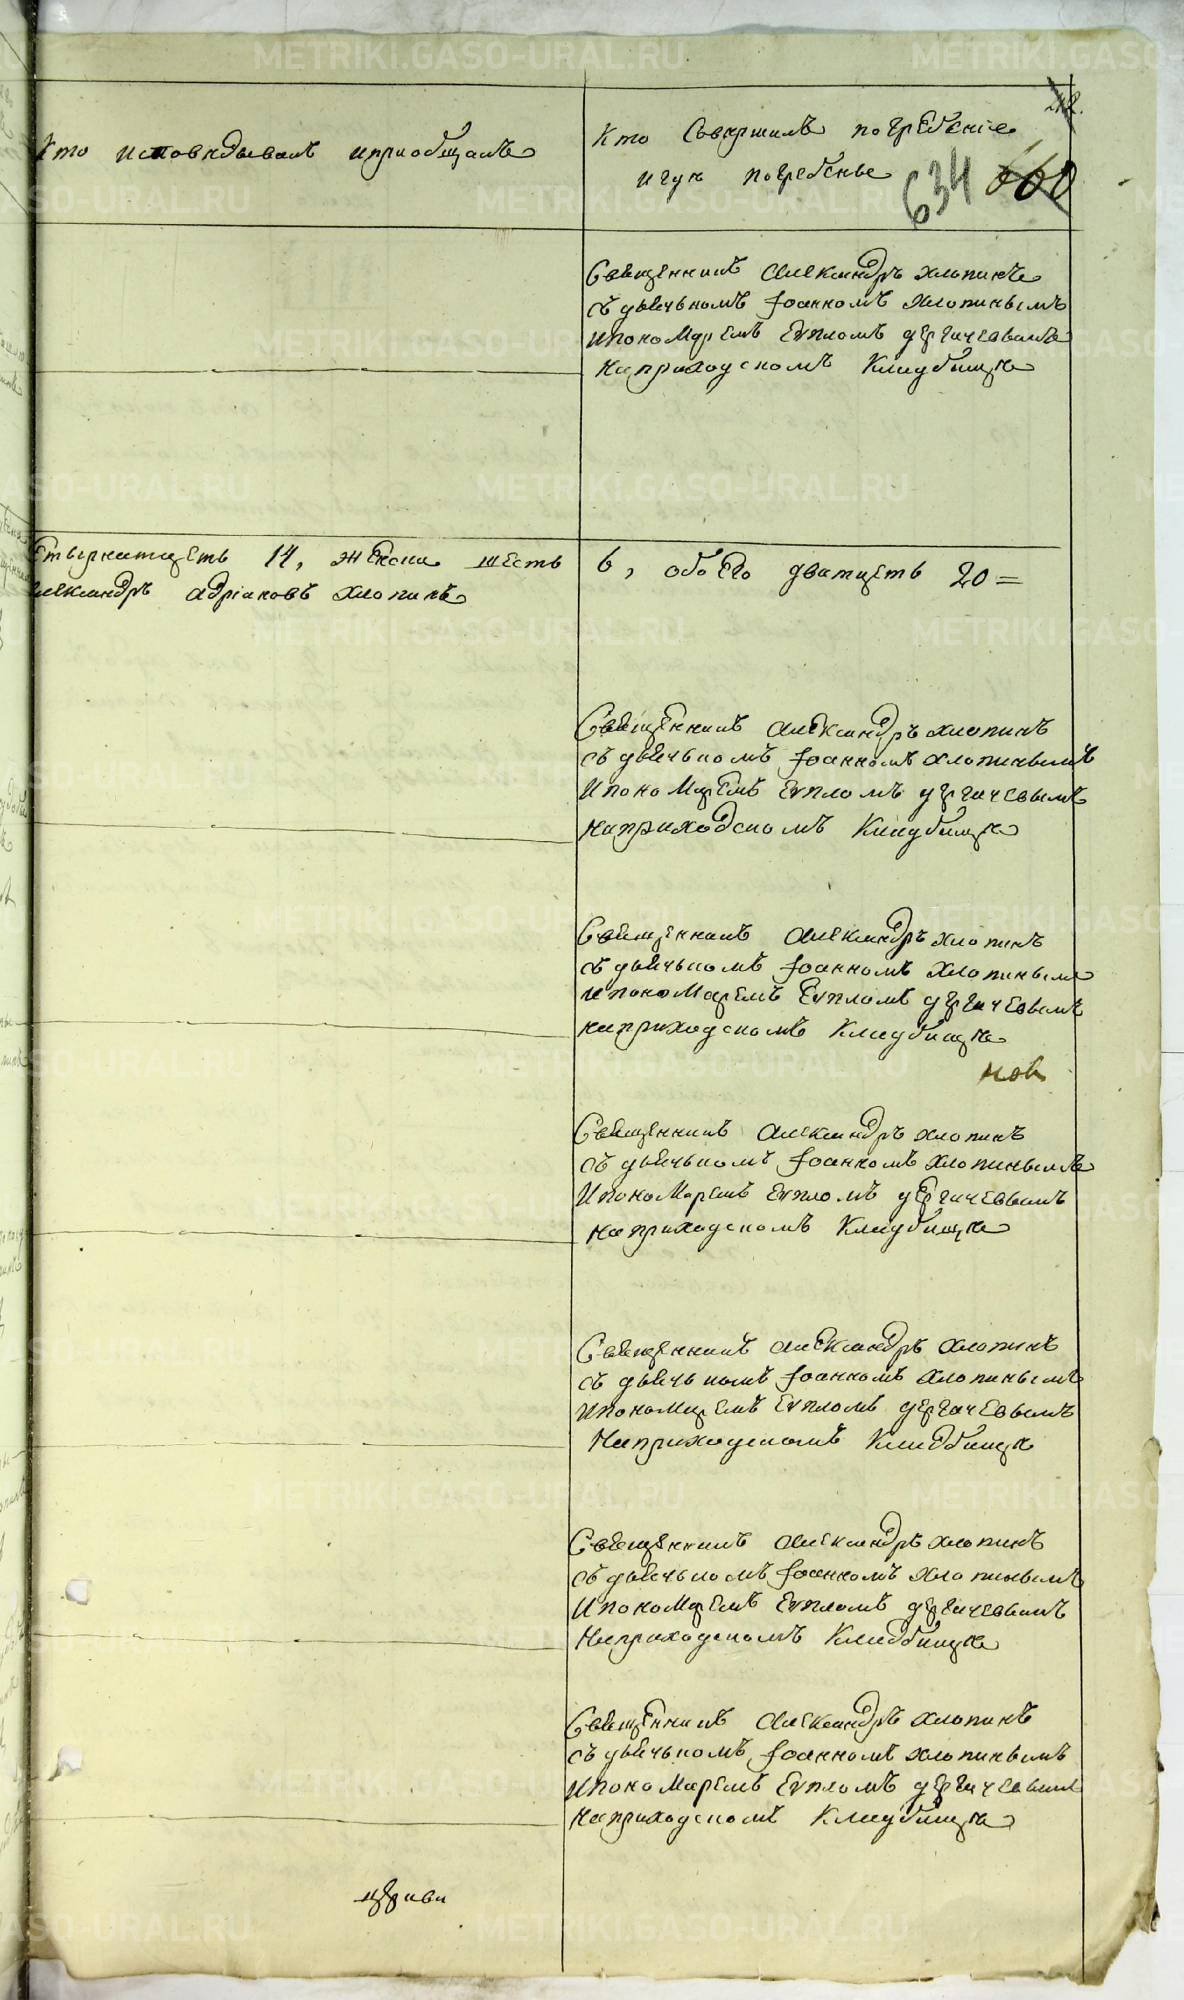 Кто исповедывалъ и приобщалъ
Кто Совершилъ погребение
и где погребены
634 660
Священникъ Александръ Хлопинъ
съ дьячькомъ Іоанномъ Хлопинымъ
и поно Маремъ Евпломъ Дергачевымъ
на приходскомъ Кладбище
етырнатцеть 14, женска шесть 6, обоего дватцеть 20=
лександръ Адріановъ Хлопинъ
Священникъ Александръ Хлопинъ
съ дьячькомъ Іоанномъ Хлопинымъ
и поно Маремъ Евпломъ Дергачевымъ
на приходскомъ Кладбище
Священникъ Александръ Хлопинъ
съ дьячькомъ Іоанномъ Хлопинымъ
и поно Маремъ Евпломъ Дергачевымъ
на приходскомъ Кладбище
Священникъ Александръ Хлопинъ
съ дьячькомъ Іоанномъ Хлопинымъ
и поно Маремъ Евпломъ Дергачевымъ
на приходскомъ Кладбище
Священникъ Александръ Хлопинъ
съ дьячькомъ Іоанномъ Хлопинымъ
и поно Маремъ Евпломъ Дергачевымъ
на приходскомъ Кладбище
Священникъ Александръ Хлопинъ
съ дьячькомъ Іоанномъ Хлопинымъ
и поно Маремъ Евпломъ Дергачевымъ
на приходскомъ Кладбище
Священникъ Александръ Хлопинъ
съ дьячькомъ Іоанномъ Хлопинымъ
и поно Маремъ Евпломъ Дергачевымъ
на приходскомъ Кладбище
церкви
METRIKI.GASO-URAL.RU